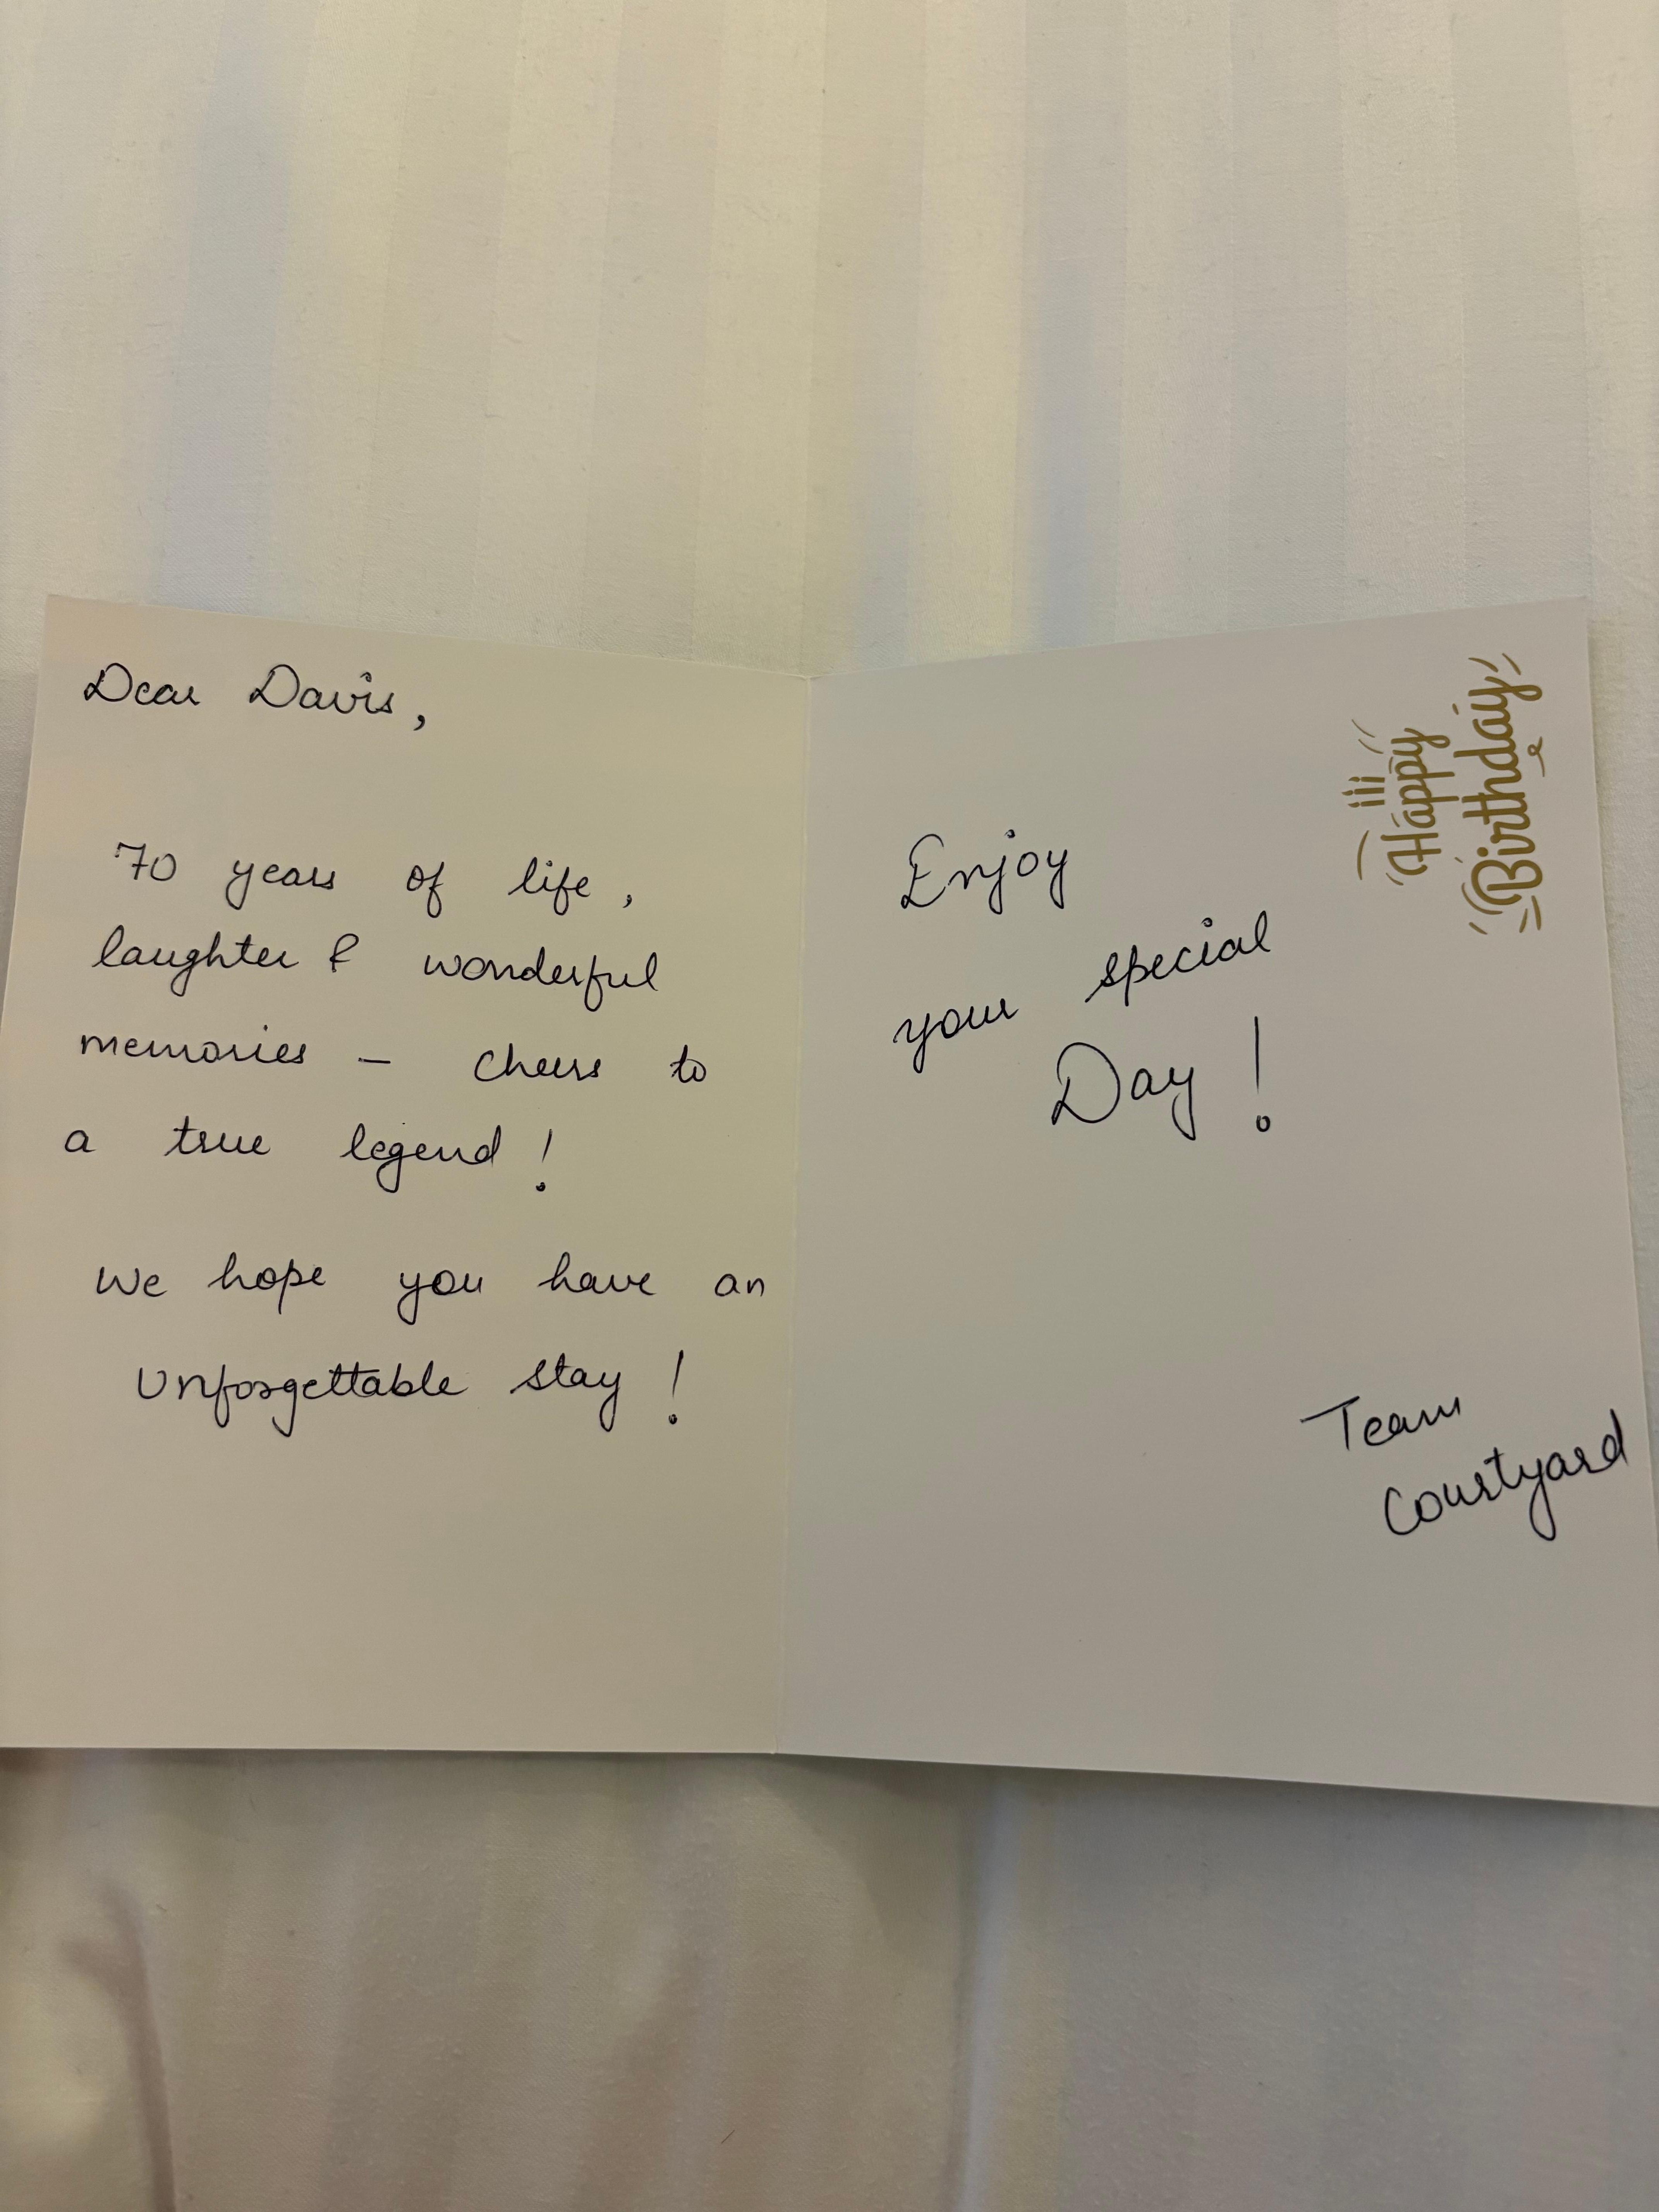 Dear Davis,
70 years of life,
laughter & wonderful
memories – cheers to
a true legend!
We hope you have an
unforgettable stay!
Happy
Birthday
Enjoy
your special
Day!
Team
Courtyard